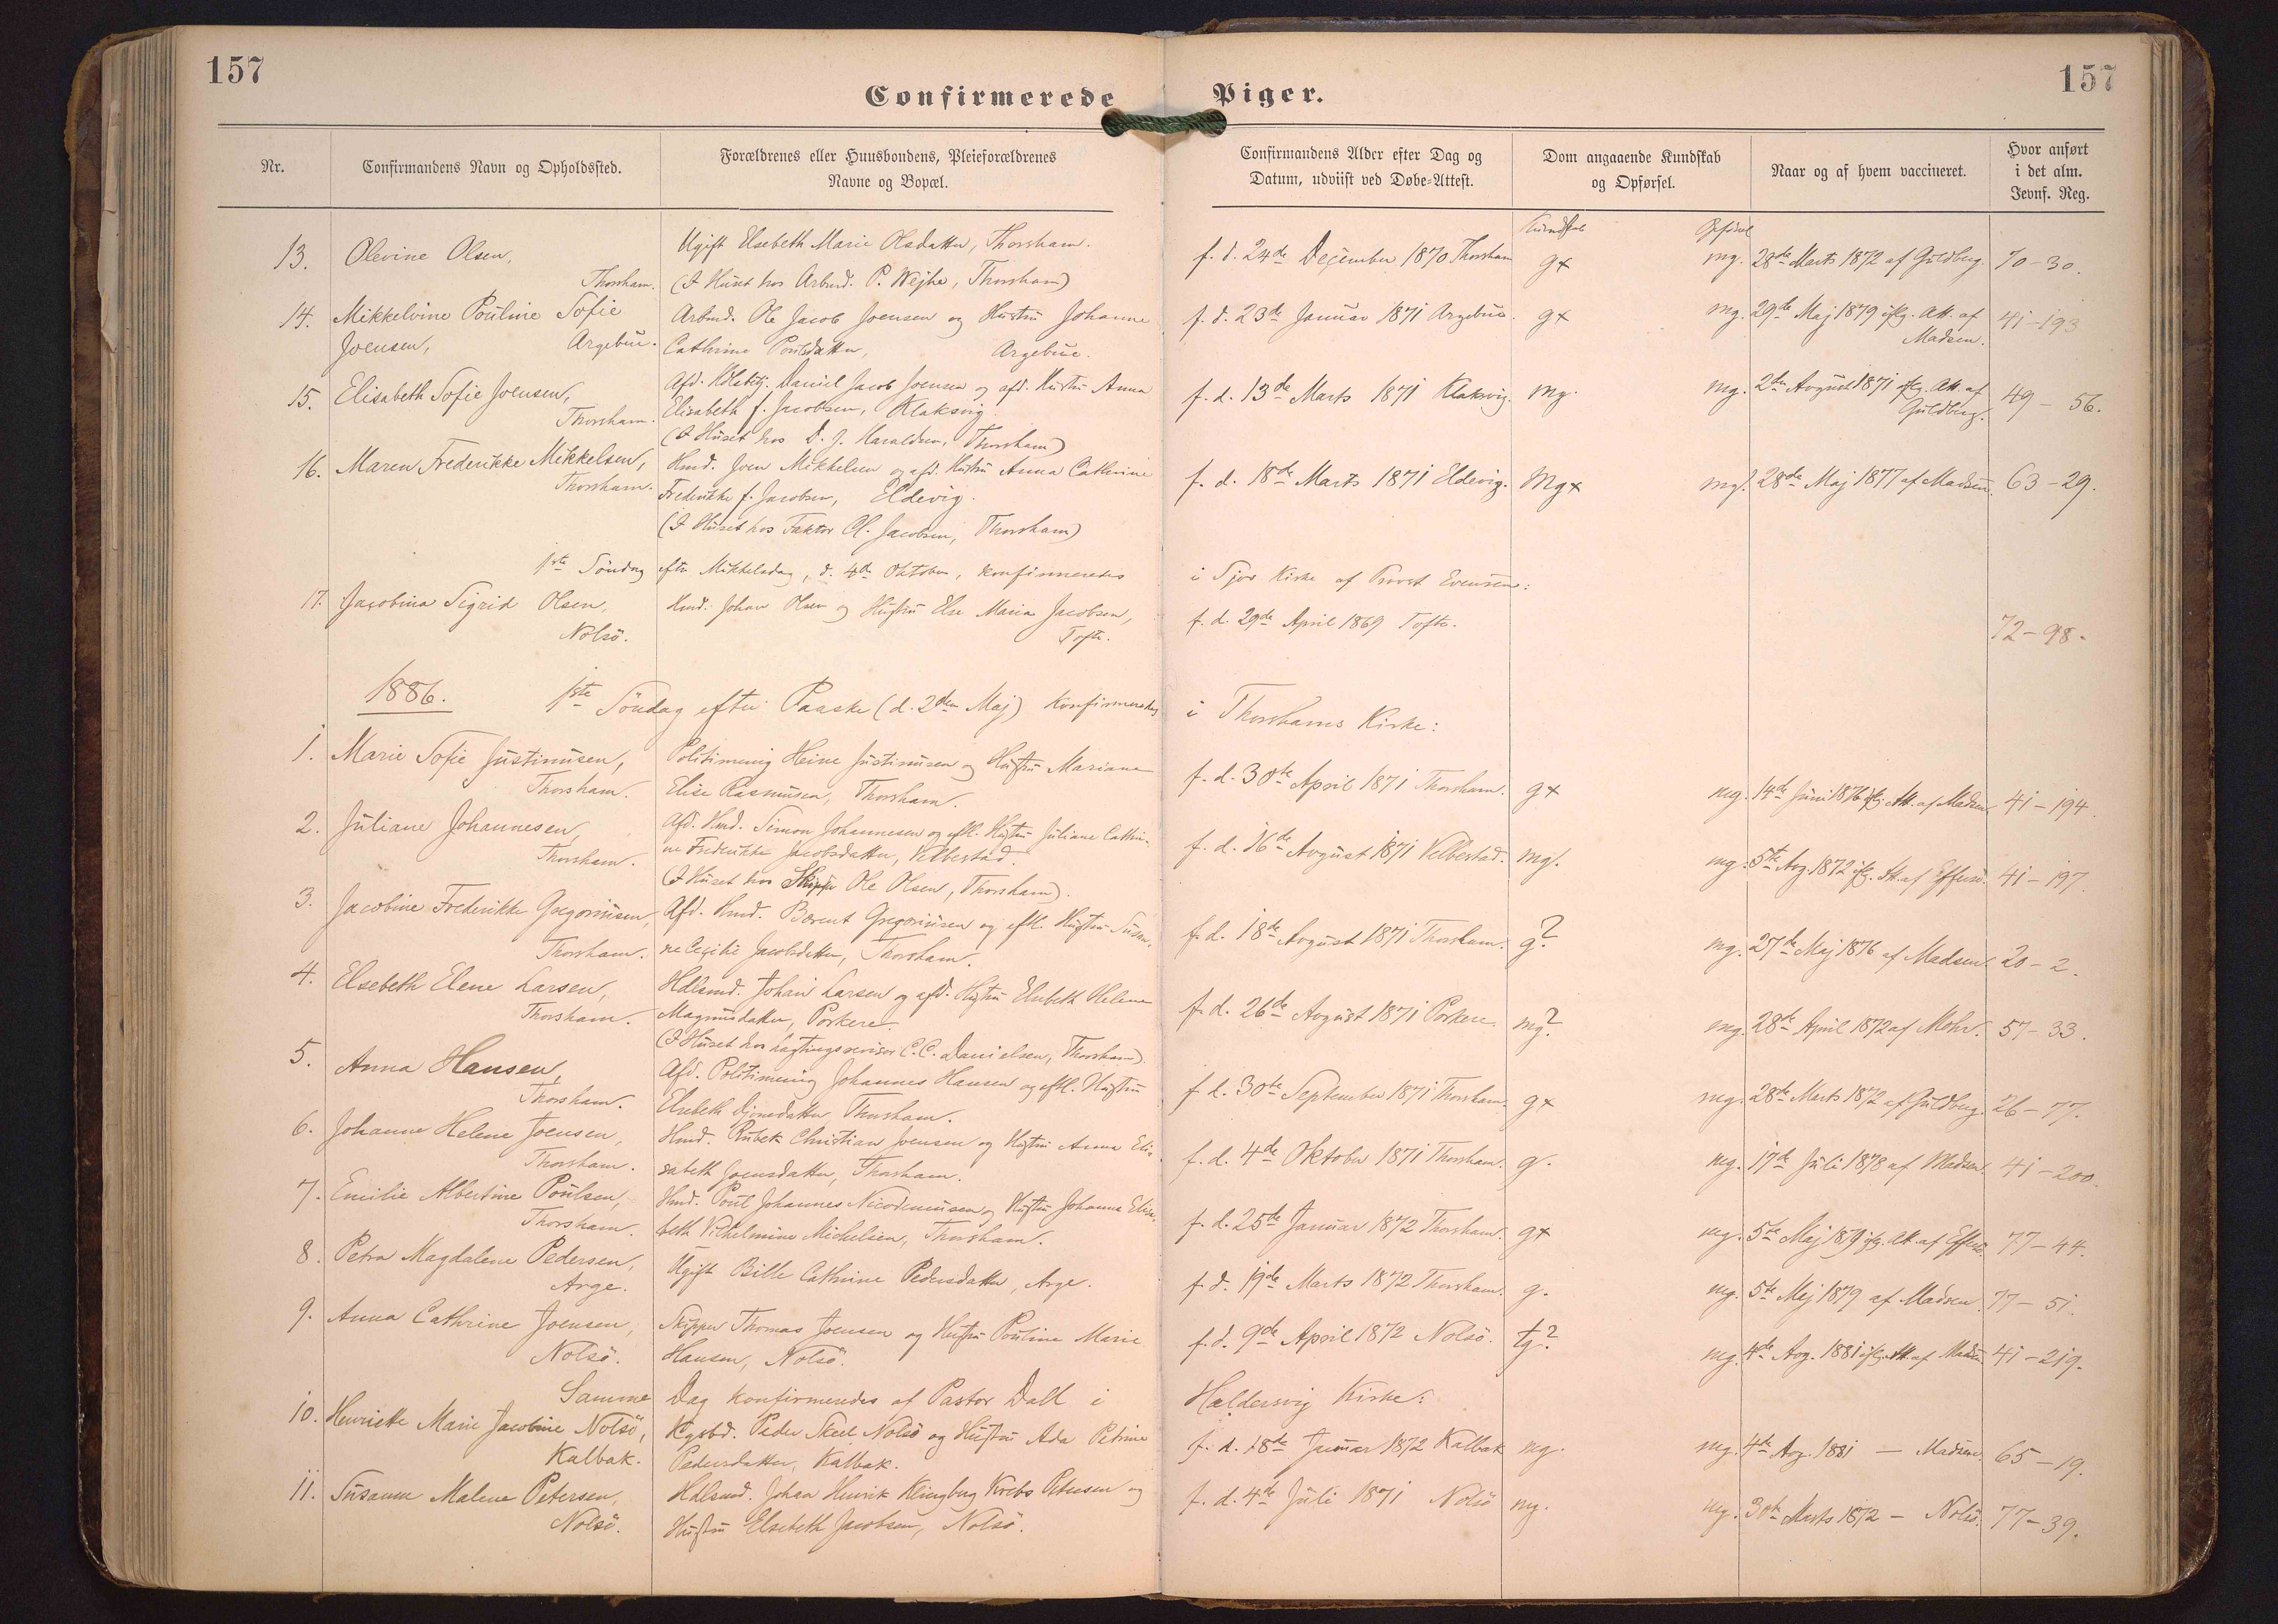 157
157
Confirmerede Piger.
Nr.
Confirmandens Navn og Opholdssted.
Forældrenes eller Huusbondens, Pleieforældrenes
Navne og Bopæl.
Confirmandens Alder efter Dag og
Datum, udviist ved Døbe-Attest.
Dom angaaende Kundskab
og Opførsel.
Naar og af hvem vaccineret.
Hvor anført
i det alm.
Jevnf. Reg.
Kundskab
Opførsel
13. Olevine Olsen,
Thorshavn.
Ugift Elsebeth Marie Olsdatter, Thorshavn.
(I Huset hos Arbmd. P. Wejhe, Thorshavn)
f. d. 24de Dezember 1870 Thorshavn
g+ mg. 28de Marts 1872 af Guldberg. 70-30.
14. Mikkelvine Pouline Sofie
Joensen, Argebue.
Arbmd. Ole Jacob Joensen og Hustru Johanne
Cathrine Poulsdatter, Argebue.
f. d. 23de Januar 1871 Argebue.
g+ mg. 29de Maj 1879 iflg. Att. af
Madsen.
41-193
15. Elisabeth Sofie Joensen,
Thorshavn.
Afd. Daniel Jacob Joensen og afd. Hustru Anna
Elisabeth f. Jacobsen, Klaksvig.
(I Huset hos D. J. Haraldsen, Thorshavn)
f. d. 13de Marts 1871 Klaksvig.
mg. mg. 2den August 1871 iflg. Att. af
Guldberg.
49-56.
16. Maren Frederikke Mikkelsen,
Thorshavn.
Hmd. Joen Mikkelsen og afd. Hustru Anna Cathrine
Frederikke f. Jacobsen, Eldevig.
(I Huset hos Faktor Ol. Jacobsen, Thorshavn)
f. d. 18de Marts 1871 Eldevig.
mg+ mg. 28de Maj 1877 af Madsen. 63-29.
1ste Søndag efter Mikkelsdag, d. 4de Oktober, konfirmeredes i Sjov Kirke af Provst Evensen:
17. Jacobina Sigrid Olsen,
Nolsö.
Hmd. Johan Olsen og Hustru Else Maria Jacobsen,
Tofte.
f. d. 29de April 1869 Tofte.
72-98.
1886. 1ste Søndag efter Paaske (d. 2den Maj) konfirmeredes i Thorshavns Kirke:
1. Marie Sofie Justinusen,
Thorshavn.
Politimenig Heine Justinusen og Hustru Mariane
Elise Rasmusen, Thorshavn.
f. d. 30te April 1871 Thorshavn.
g+ mg. 14de Juni 1876 iflg. Att. af Madsen 41-194.
2. Juliane Johannesen,
Thorshavn.
Afd. Hmd. Simon Johannesen og eftl. Hustru Juliane Cathri-
ne Frederikke Jacobsdatter, Velbestad.
(I Huset hos Skipper Ole Olsen, Thorshavn).
f. d. 16de August 1871 Velbestad.
mg. mg. 5te Aug. 1872 iflg. Att. af Effersø. 41-197.
3. Jacobine Frederikke Gregoriusen,
Thorshavn.
Afd. Hmd. Barent Gregoriusen og eftl. Hustru Susan-
ne Cecilie Jacobsdatter, Thorshavn.
f. d. 18de August 1871 Thorshavn.
g? mg. 27de Maj 1876 af Madsen 20-2.
4. Elsebeth Elene Larsen,
Thorshavn.
Hdlsmd. Johan Larsen og afd. Hustru Elsebeth Helene
Magnusdatter, Porkere.
(I Huset hos Lagtingsrevisor C. C. Danielsen, Thorshavn).
f. d. 26de August 1871 Porkere.
mg? mg. 28de April 1872 af Mohr. 57-33.
5. Anna Hansen,
Thorshavn.
Afd. Politimenig Johannes Hansen og eftl. Hustru
Elsebeth Djonedatter, Thorshavn.
f. d. 30te September 1871 Thorshavn.
g+ mg. 28de Marts 1872 af Guldberg. 26-77.
6. Johanne Helene Joensen,
Thorshavn.
Hmd. Rubek Christian Joensen og Hustru Anna Eli-
sabeth Joensdatter, Thorshavn.
f. d. 4de Oktober 1871 Thorshavn.
g. mg. 17de Juli 1878 af Madsen 41-200.
7. Emilie Albertine Poulsen,
Thorshavn.
Hmd. Poul Johannes Nicodemusen og Hustru Johanne Elisa-
beth Vilhelmine Michelsen, Thorshavn.
f. d. 25de Januar 1872 Thorshavn.
g+ mg. 5te Maj 1879 iflg. Att. af Effersø. 77-44.
8. Petra Magdalene Pedersen,
Arge.
Ugift Bille Cathrine Pedersdatter, Arge.
f. d. 19de Marts 1872 Thorshavn.
g. mg. 5te Maj 1879 af Madsen. 77-51.
9. Anna Cathrine Joensen,
Nolsö.
Skipper Thomas Joensen og Hustru Pouline Marie
Hansen, Nolsö.
f. d. 9de April 1872 Nolsö.
tg? mg. 4de Aug. 1881 iflg. Att. af Madsen 41-219.
Samme Dag konfirmeredes af Pastor Dall i Haldersvig Kirke:
10. Henriette Marie Jacobine Nolsö,
Kalbak.
Kgsbd. Peder Skeel Nolsö og Hustru Ada Petrine
Pedersdatter, Kalbak.
f. d. 18de Januar 1872 Kalbak
mg. mg. 4de Aug. 1881 — Madsen. 65-19.
11. Susanne Malene Petersen,
Nolsö.
Hdlsmd. Johan Henrik Klingberg Krebs Petersen og
Hustru Elsebeth Jacobsen, Nolsö.
f. d. 4de Juli 1871 Nolsö
mg. mg. 30te Marts 1872 — Nolsö. 77-39.